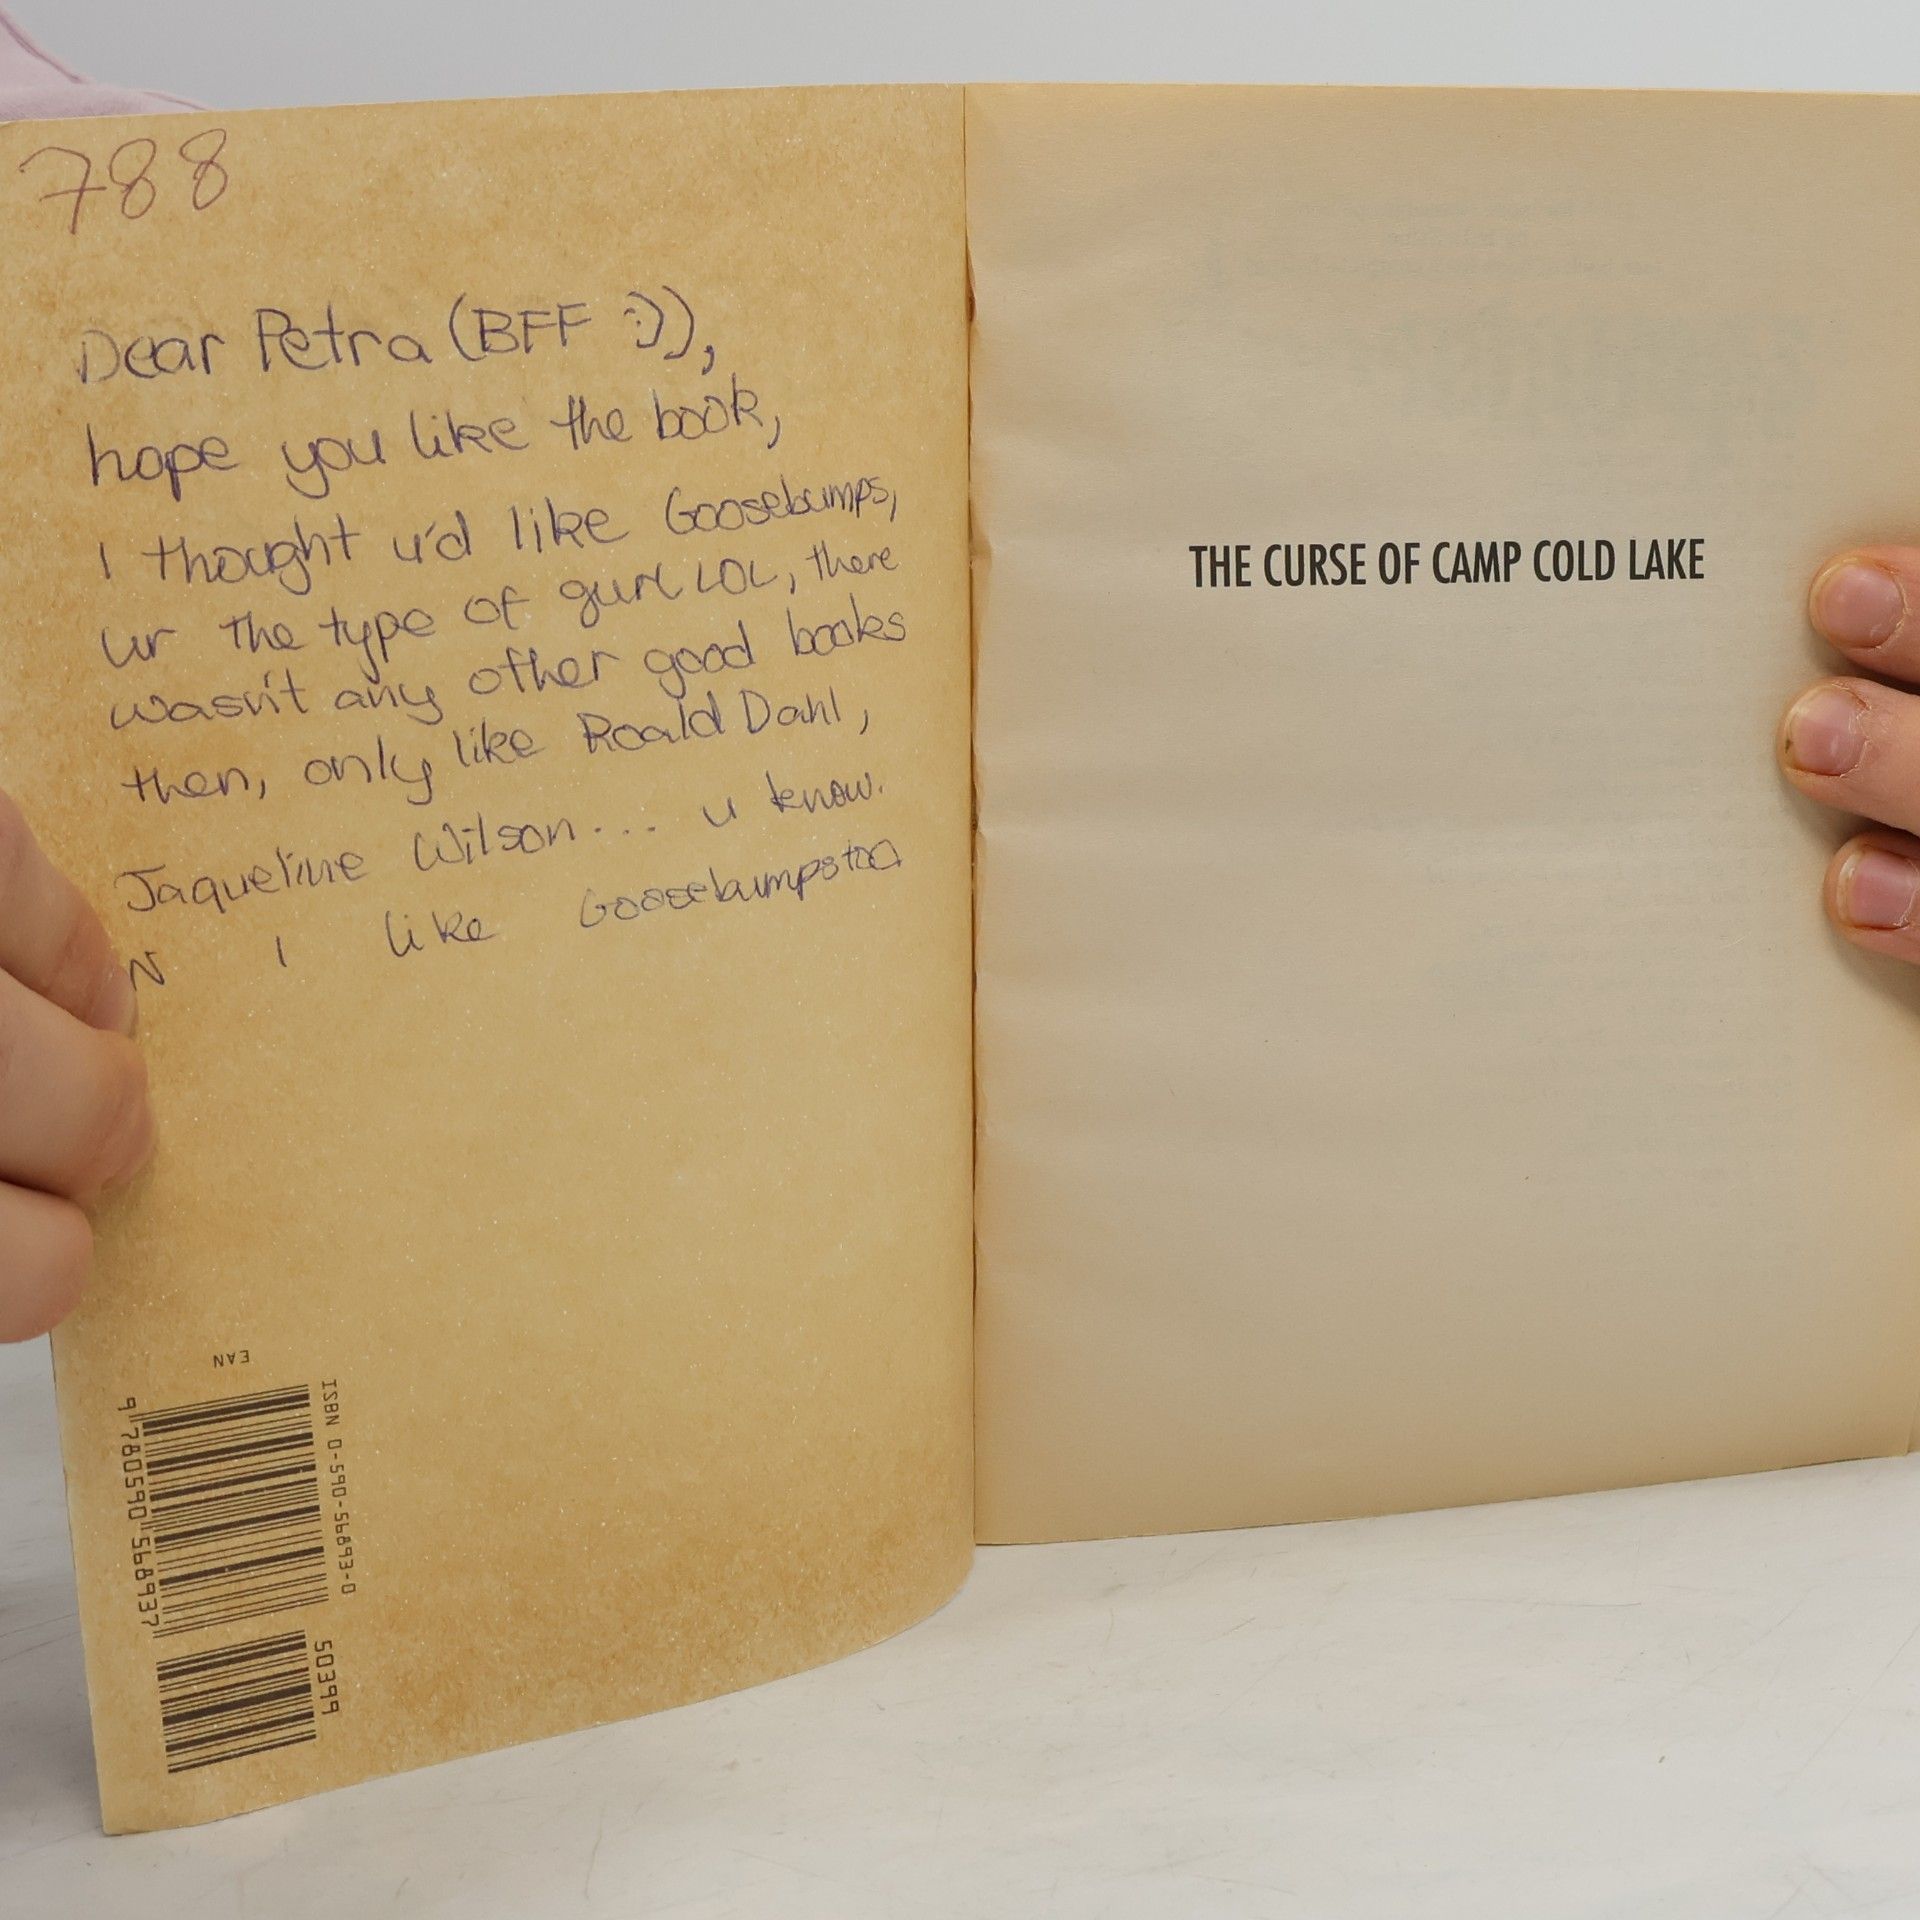 788
Dear Petra (BFF :)),
hope you like the book,
I thought u'd like Goosebumps,
ur the type of gurl LOL, there
wasn't any other good books
then, only like Roald Dahl,
Jaqueline Wilson... u know.
N I like Goosebumps too
EAN
9 780590 568937
ISBN 0-590-56893-0
50399
THE CURSE OF CAMP COLD LAKE